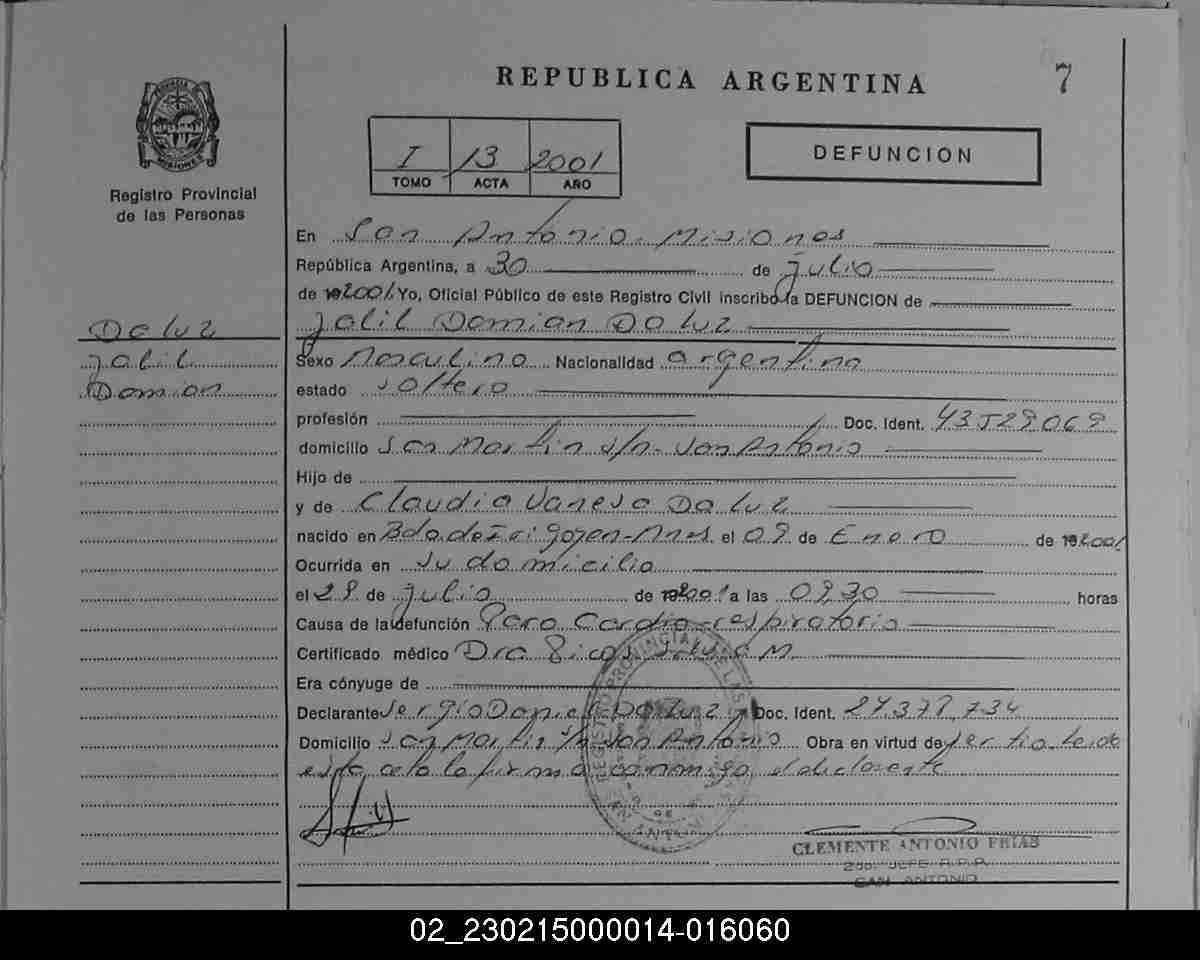 REPUBLICA ARGENTINA
7
PROVINCIA DE
MISIONES
Registro Provincial
de las Personas
I 13 2001
TOMO ACTA AÑO
DEFUNCION
En San Antonio - Misiones
República Argentina, a 30 de Julio
de 19 2001 Yo, Oficial Público de este Registro Civil inscribo la DEFUNCION de
Jalil Damian Da Luz
Da Luz
Jalil
Damian
Sexo Masculino Nacionalidad argentina
estado soltero
profesión Doc. Ident. 43529069
domicilio San Martin s/n - San Antonio
Hijo de
y de Claudia Vanesa Da Luz
nacido en Bdo. de Irigoyen - Mnes. el 09 de Enero de 19 2001
Ocurrida en su domicilio
el 29 de Julio de 19 2001 a las 09,30 horas
Causa de la defunción Paro Cardio-respiratorio
Certificado médico Dra M.
Era cónyuge de
Declarante Sergio Daniel Da Luz Doc. Ident. 27.378.734
Domicilio San Martin s/n San Antonio Obra en virtud de ser tio Leida
esta acta la firma conmigo el declarante
REGISTRO PROVINCIAL DE LAS PERSONAS
SAN ANTONIO
CLEMENTE ANTONIO FRIAS
2do. JEFE R.P.P.
SAN ANTONIO
02_230215000014-016060